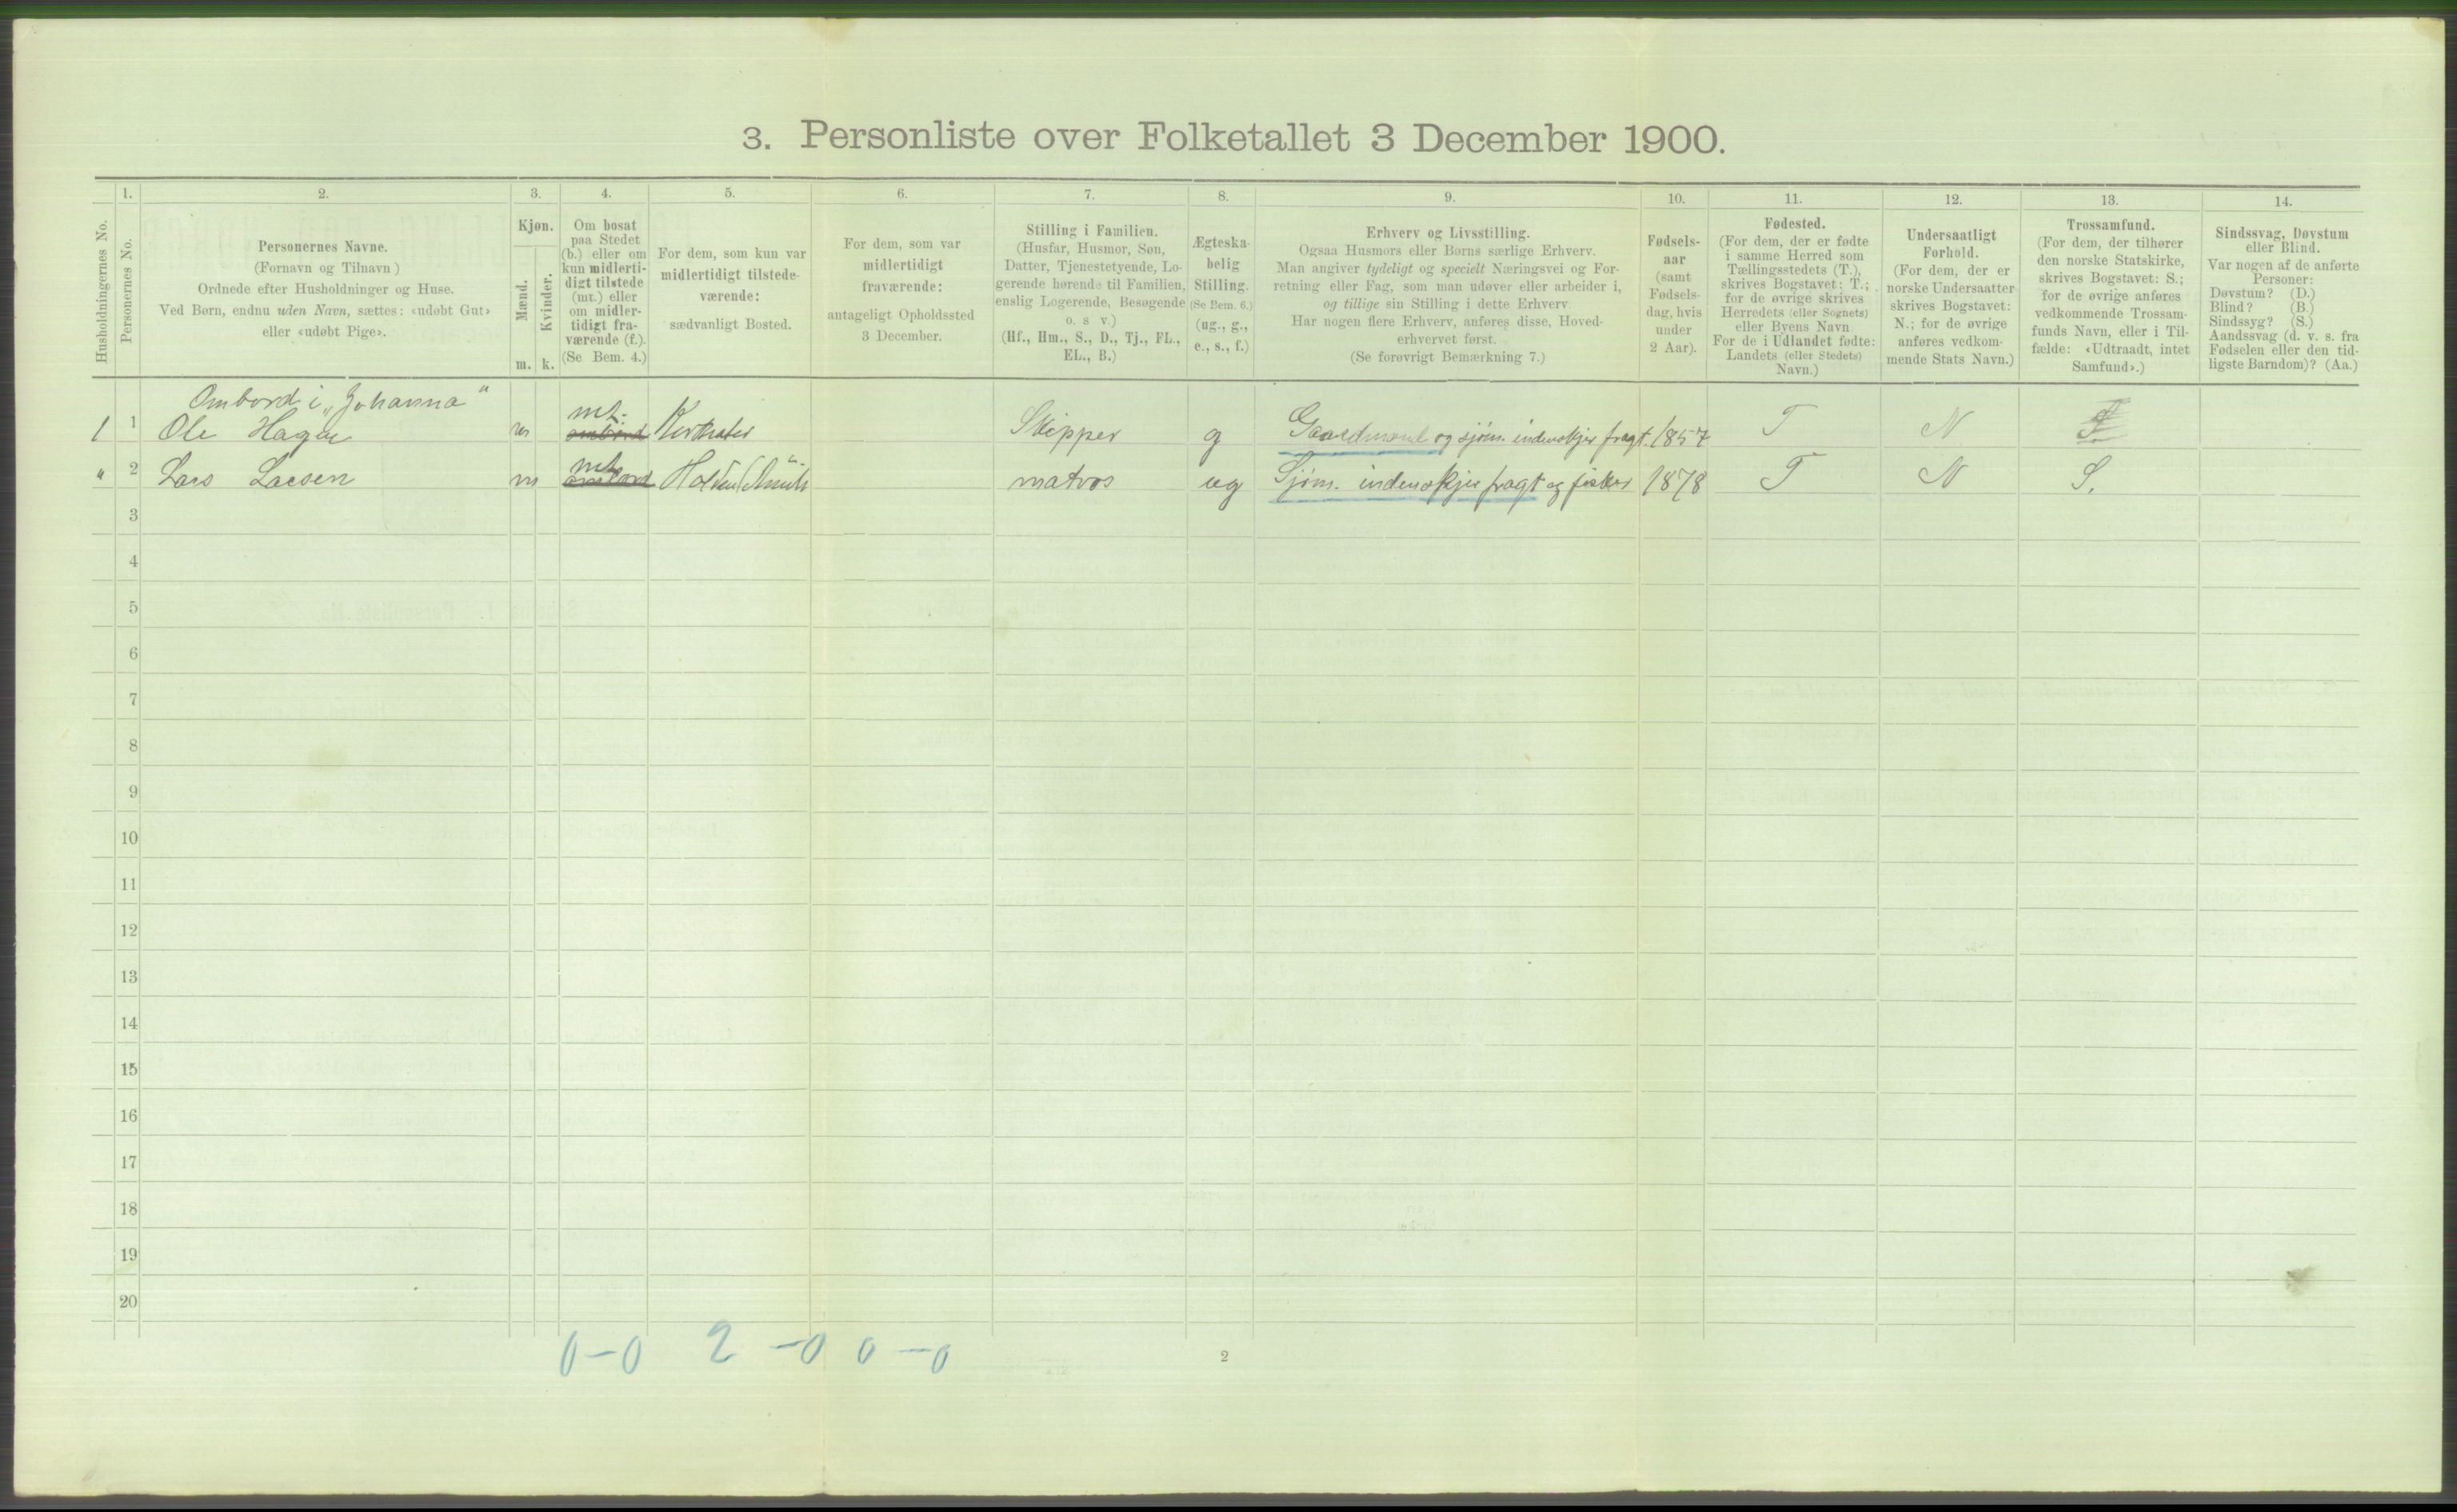 3. Personliste over Folketallet 3 December 1900.
Husholdningernes No.
1.
Personernes No.
2.
Personernes Navne.
(Fornavn og Tilnavn)
Ordnede efter Husholdninger og Huse.
Ved Børn, endnu uden Navn, sættes: «udøbt Gut»
eller «udøbt Pige».
3.
Kjøn.
Mænd.
Kvinder.
m. k.
4.
Om bosat
paa Stedet
(b.) eller om
kun midlerti-
digt tilstede
(mt.) eller
om midler-
tidigt fra-
værende (f.).
(Se Bem. 4.)
5.
For dem, som kun var
midlertidigt tilstede-
værende:
sædvanligt Bosted.
6.
For dem, som var
midlertidigt
fraværende:
antageligt Opholdssted
3 December.
7.
Stilling i Familien.
(Husfar, Husmor, Søn,
Datter, Tjenestetyende, Lo-
gerende hørende til Familien,
enslig Logerende, Besøgende
o. s v.)
(Hf., Hm., S., D., Tj., FL.,
EL., B.)
8.
Ægteska-
belig
Stilling.
(Se Bem. 6.)
(ug., g.,
e., s., f.)
9.
Erhverv og Livsstilling.
Ogsaa Husmors eller Børns særlige Erhverv.
Man angiver tydeligt og specielt Næringsvei og For-
retning eller Fag, som man udøver eller arbeider i,
og tillige sin Stilling i dette Erhverv.
Har nogen flere Erhverv, anføres disse, Hoved-
erhvervet først.
(Se forøvrigt Bemærkning 7.)
10.
Fødsels-
aar
(samt
Fødsels-
dag, hvis
under
2 Aar).
11.
Fødested.
(For dem, der er fødte
i samme Herred som
Tællingsstedets (T.),
skrives Bogstavet: T.;
for de øvrige skrives
Herredets (eller Sognets)
eller Byens Navn
For de i Udlandet fødte:
Landets (eller Stedets)
Navn.)
12.
Undersaatligt
Forhold.
(For dem, der er
norske Undersaatter
skrives Bogstavet:
N.; for de øvrige
anføres vedkom-
mende Stats Navn.)
13.
Trossamfund.
(For dem, der tilhører
den norske Statskirke,
skrives Bogstavet: S.;
for de øvrige anføres
vedkommende Trossam-
funds Navn, eller i Til-
fælde: «Udtraadt, intet
Samfund».)
14.
Sindssvag, Døvstum
eller Blind.
Var nogen af de anførte
Personer:
Døvstum? (D.)
Blind? (B.)
Sindssyg? (S.)
Aandssvag (d. v. s. fra
Fødselen eller den tid-
ligste Barndom)? (Aa.)
Ombord i „Johanna"
1 1 Ole Hagen m mt. ombord Skipper g Gaardmand og sjøm. indenskjærs fragt. 1857 T N
" 2 Lars Larsen m mt ombord matros ug Sjøm. indenskjærs fragt og fisker 1878 T N S.
3
4
5
6
7
8
9
10
11
12
13
14
15
16
17
18
19
20
0-0 2-0 0-0
2